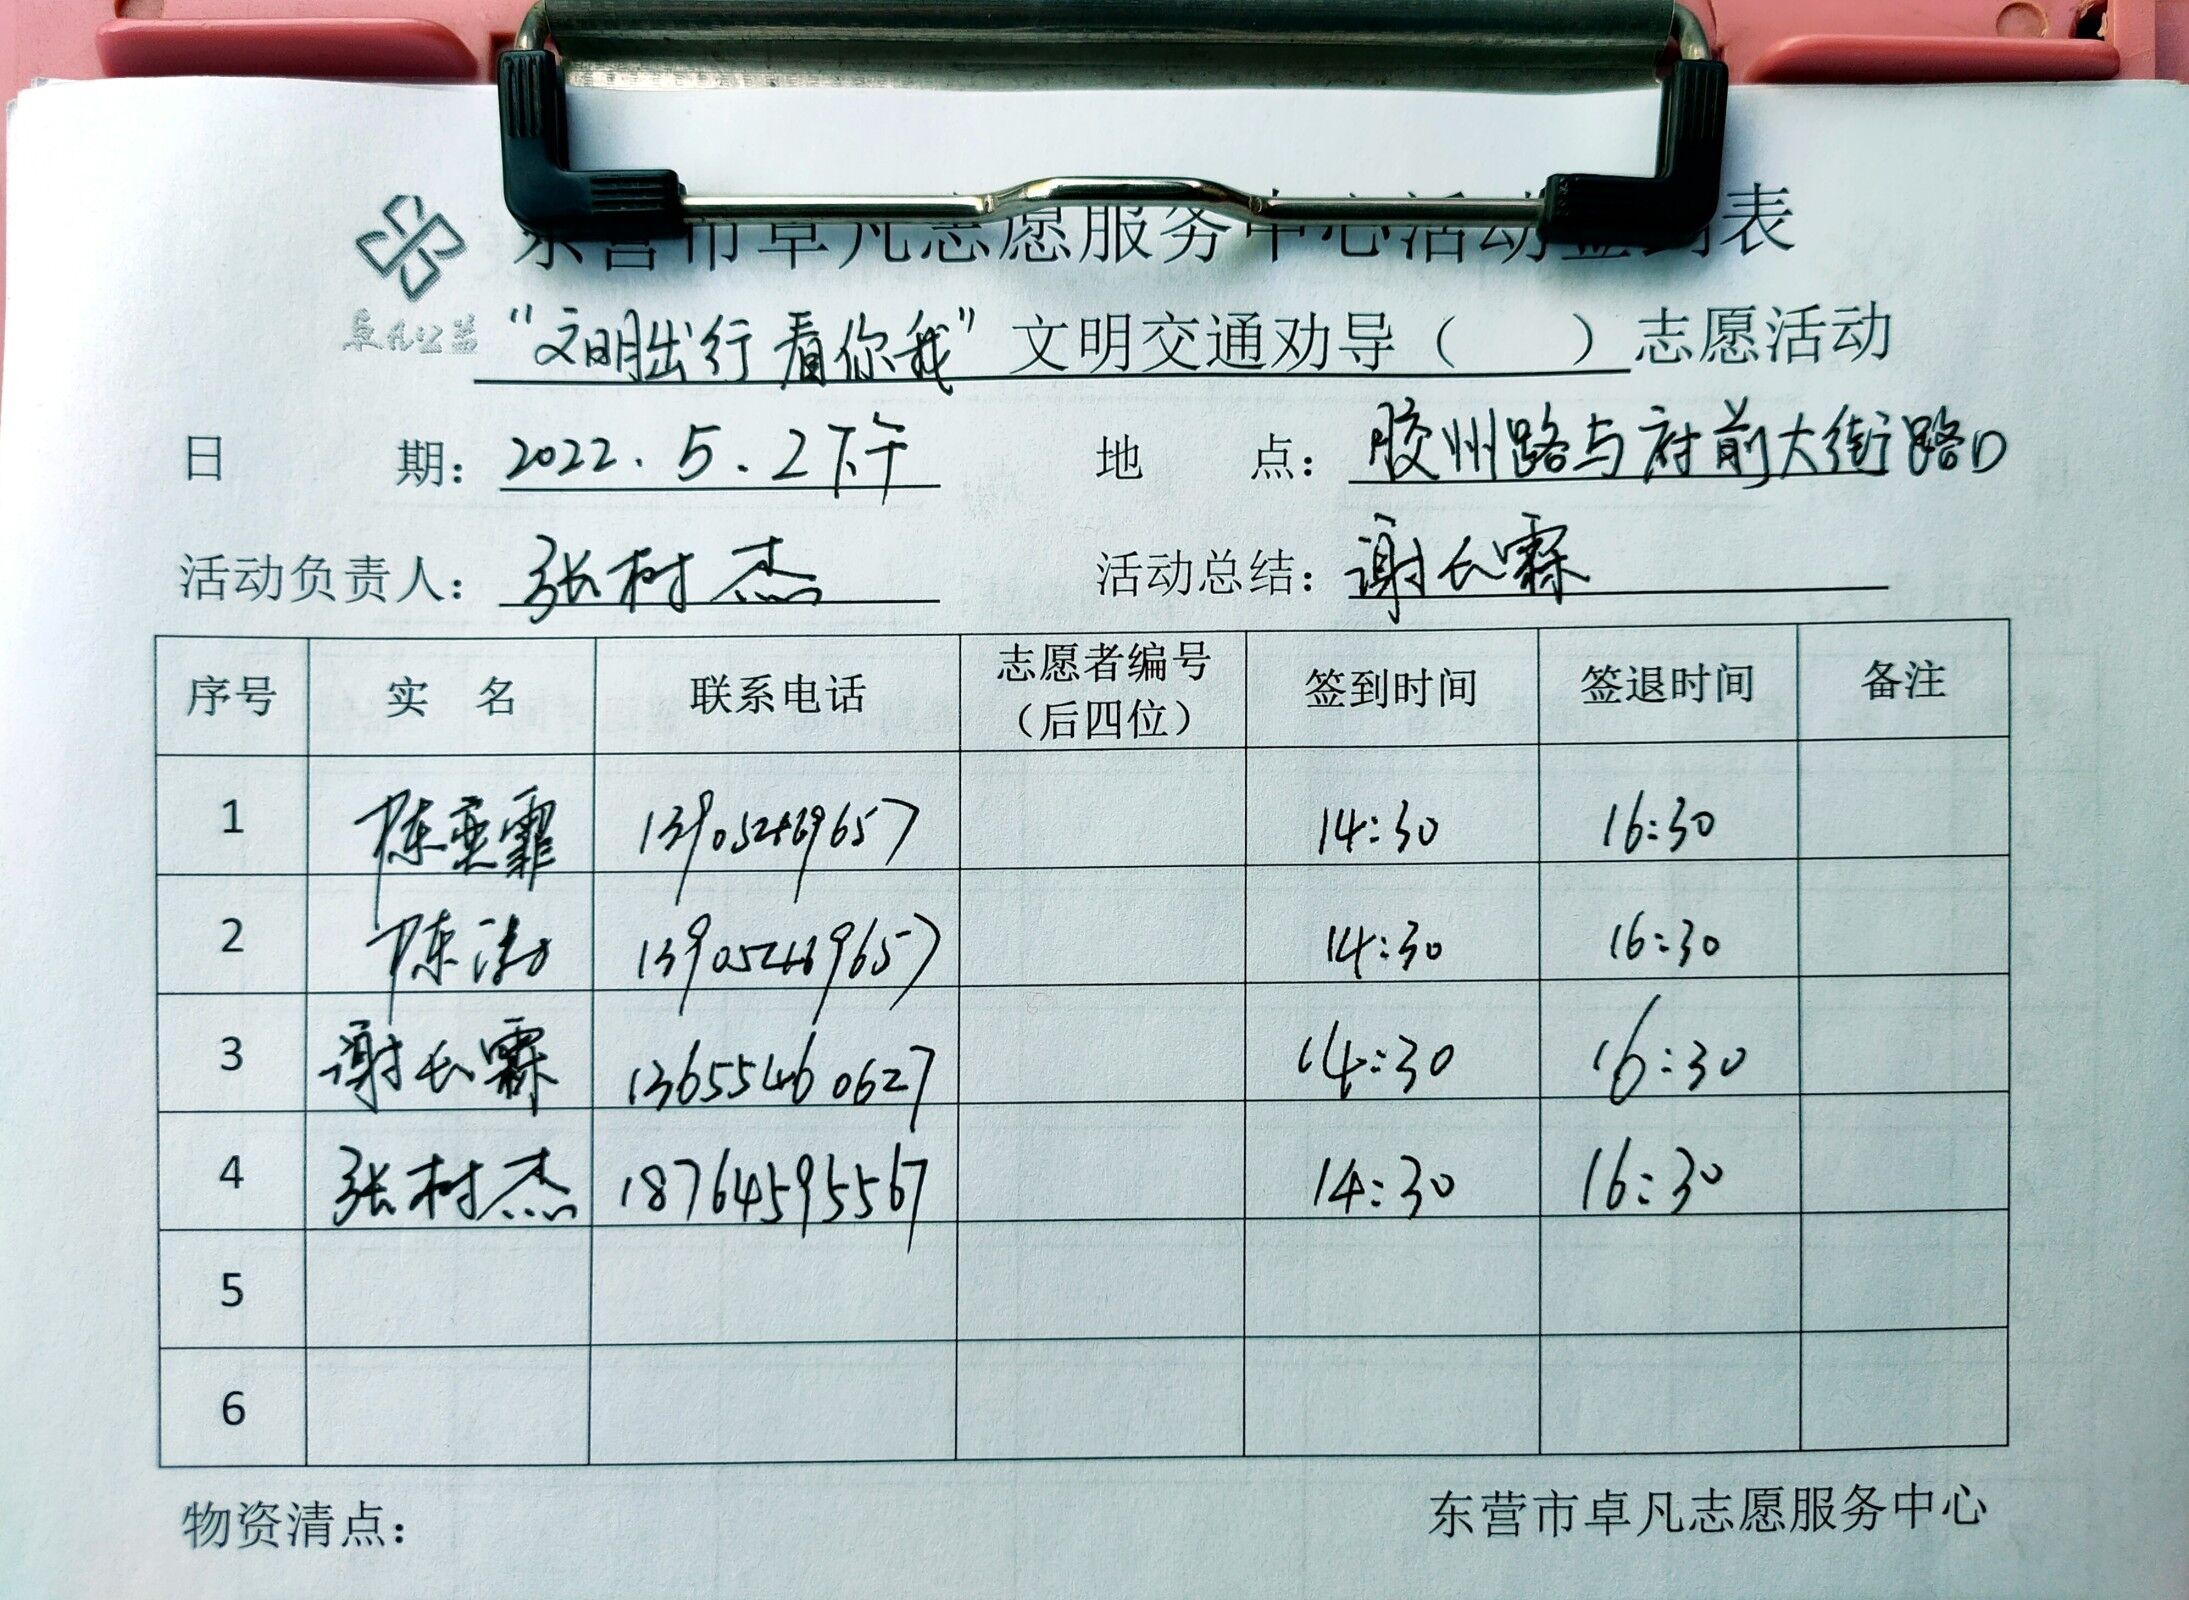 东营市卓凡志愿服务中心活动签到表
卓凡公益
“文明出行 看你我”文明交通劝导（ ）志愿活动
日 期：2022.5.2下午 地 点：胶州路与府前大街路口
活动负责人：张树杰 活动总结：谢长霖
序号 实 名 联系电话 志愿者编号（后四位） 签到时间 签退时间 备注
1 陈奕霏 13905469657 14:30 16:30
2 陈涛 13905469657 14:30 16:30
3 谢长霖 13655460627 14:30 16:30
4 张树杰 18764595567 14:30 16:30
5
6
物资清点： 东营市卓凡志愿服务中心